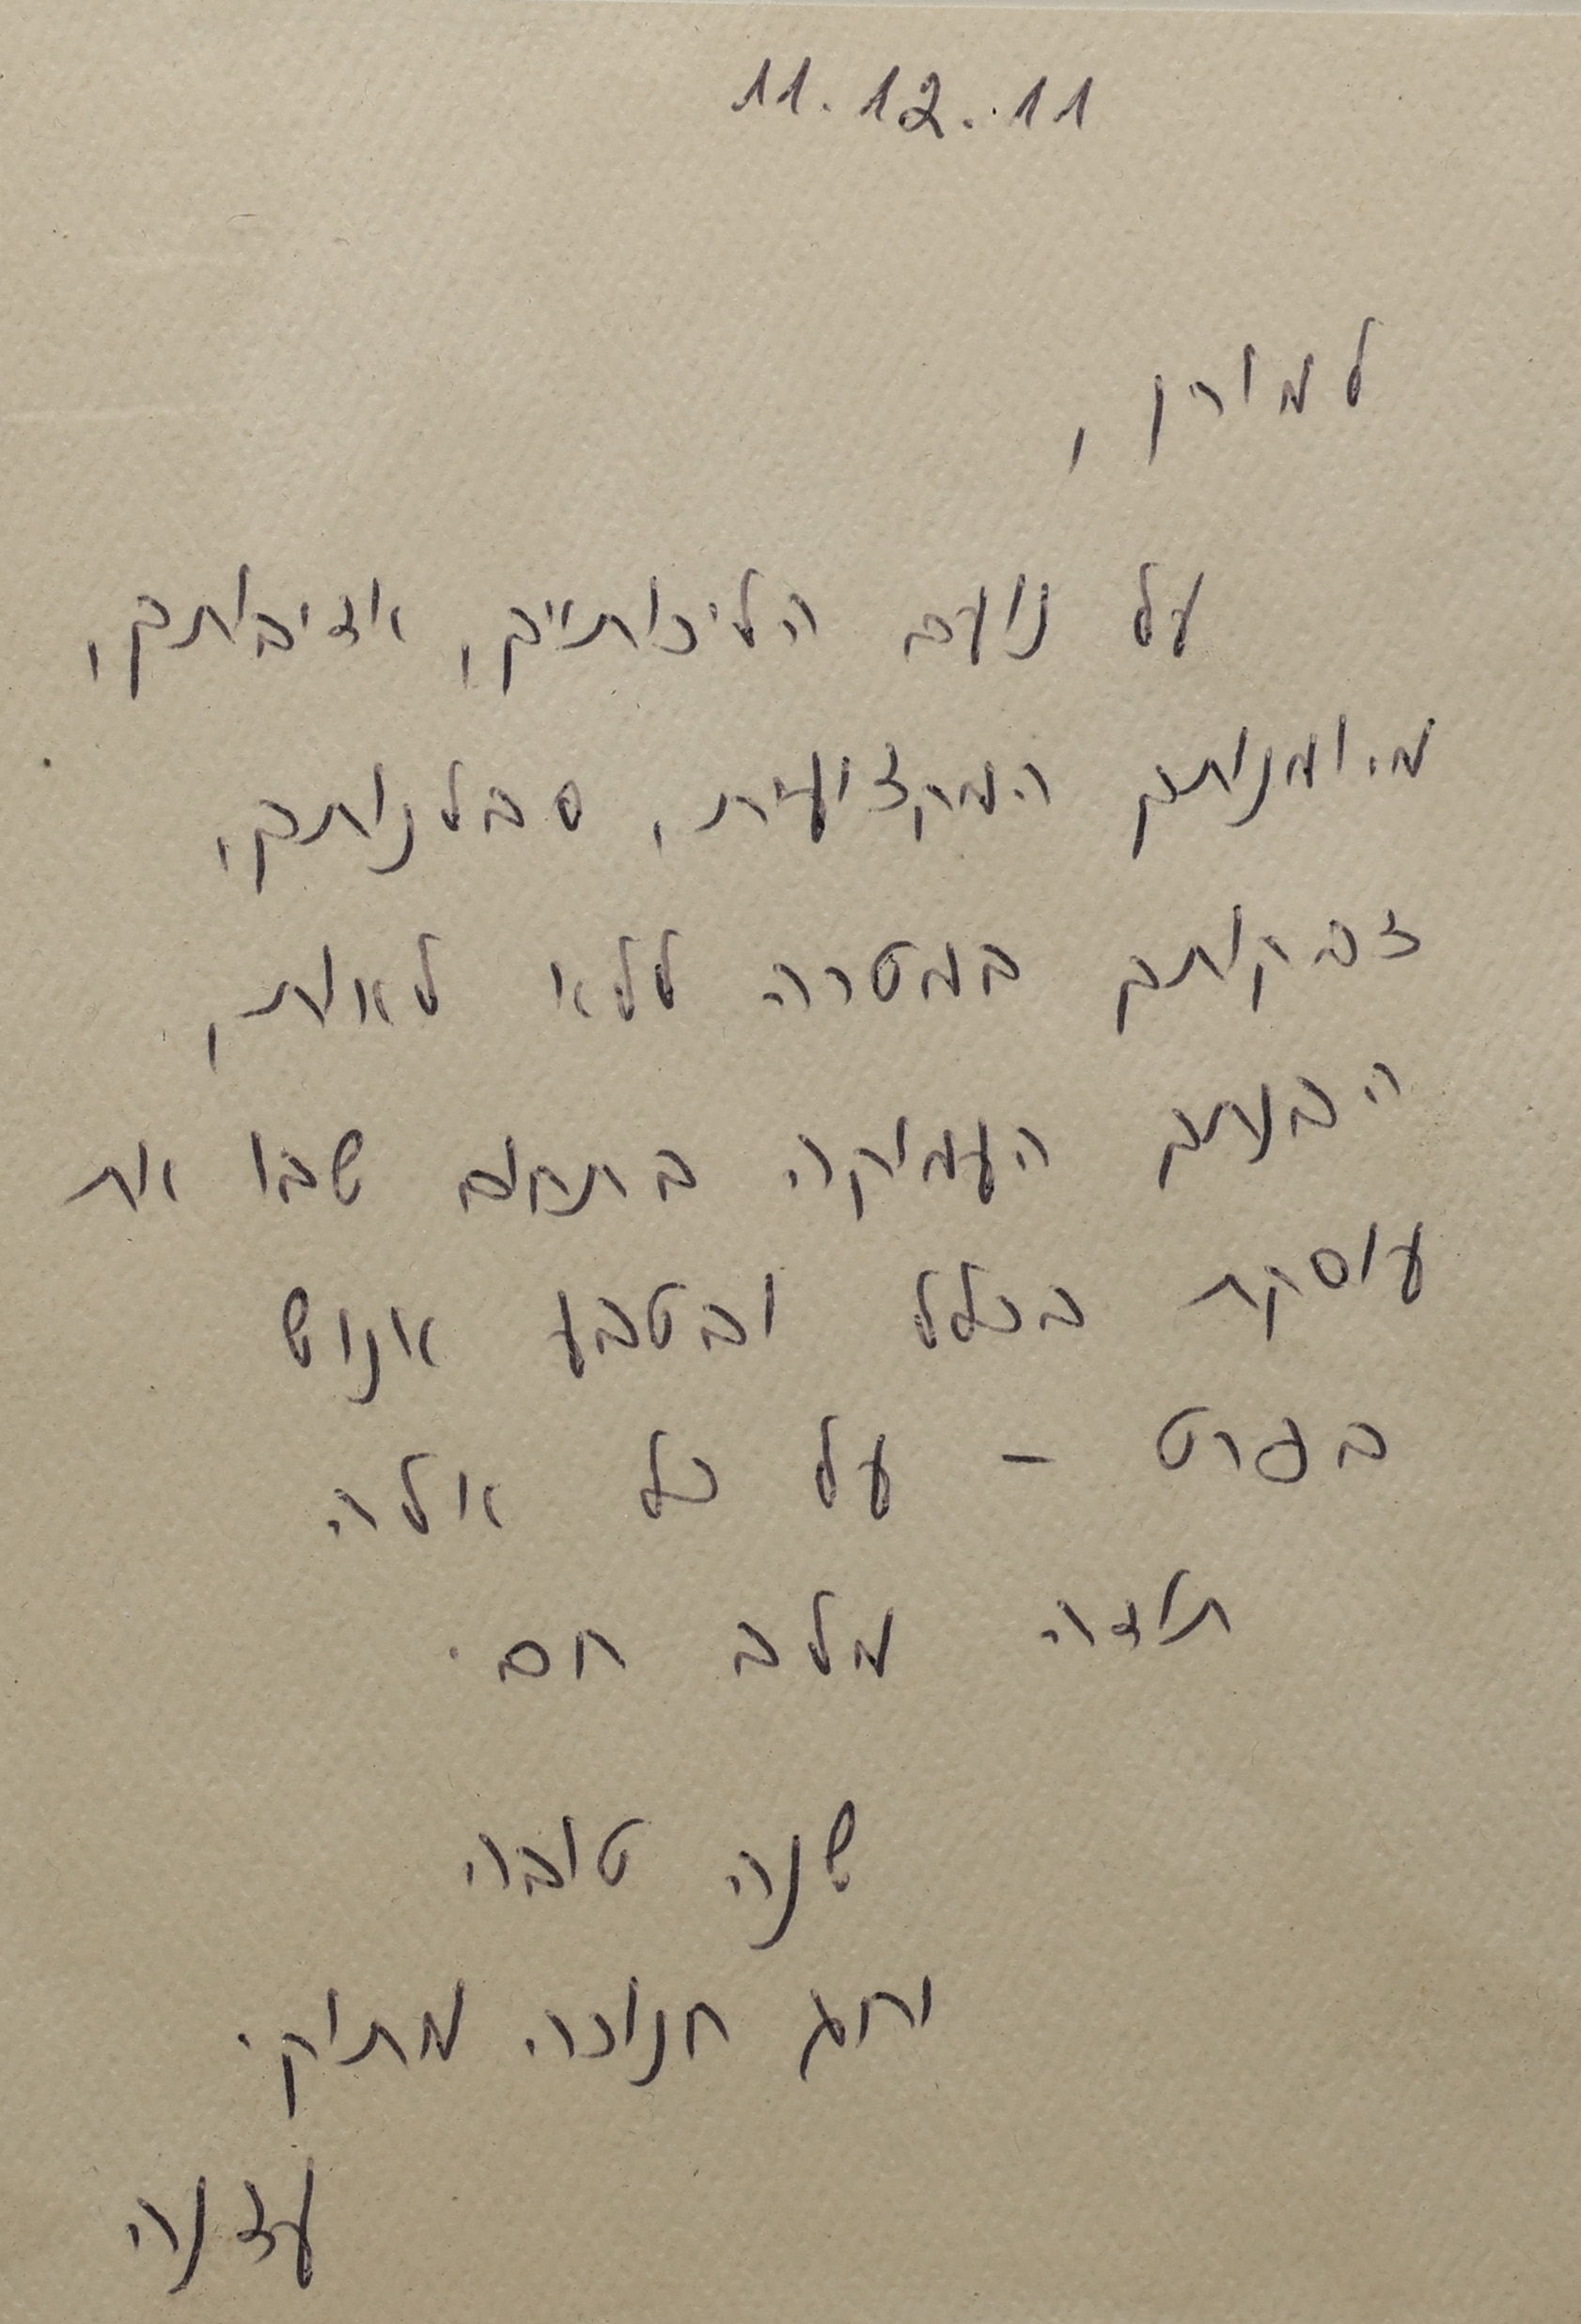 11.12.11
למורן,
על נועם הליכותייך, אדיבותך,
מיומנותך המקצועית, סבלנותך,
דבקותך במטרה ללא לאות,
הבנתך העמוקה בתחום שבו את
עוסקת בכלל ובטבע אנוש
בפרט – על כל אלה
תודה מלב חם.
שנה טובה
וחג חנוכה מתוק.
עדנה